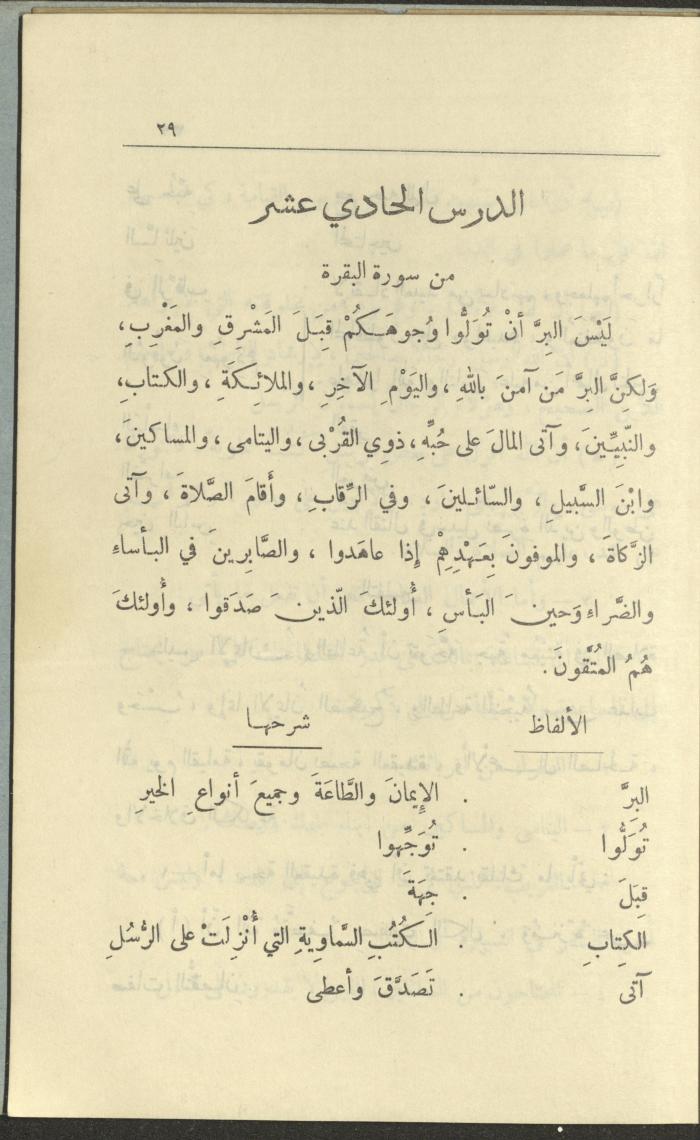 ٢٩
الدرس الحادي عشر
من سورة البقرة
لَيْسَ البِرَّ أنْ تُوَلُّوا وُجوهَكُمْ قِبَلَ المَشْرِقِ والمَغْرِبِ،
وَلكِنَّ البِرَّ مَن آمنَ باللهِ ، واليَوْمِ الآخِرِ ، والملائِكَةِ ، والكتابِ،
والنّبِيِّينَ، وآتى المالَ على حُبِّهِ، ذوي القُرْبى ، واليتامى ، والمساكينَ،
وابْنَ السَّبيلِ ، والسّائلينَ ، وفي الرِّقابِ ، وأقامَ الصَّلاةَ ، وآتى
الزَّكاةَ ، والموفونَ بِعَهْدِهِمْ إذا عاهَدوا ، والصَّابِرينَ في البأساءِ
والضَّراءِ وَحينَ البَأسِ ، أُولئكَ الّذينَ صَدَقوا ، وأُولئكَ
هُمُ المُتَّقونَ.
الألفاظ شرحها
البِرَّ . الإيمانَ والطَّاعَةَ وجميعَ أنواعِ الخيرِ
تُوَلُّوا . تُوَجِّهوا
قِبَلَ . جِهَةَ
الكِتابِ . الكُتُبِ السَّماوِيةِ التي أُنْزِلَتْ على الرُّسُلِ
آتى . تَصَدَّقَ وأعطى